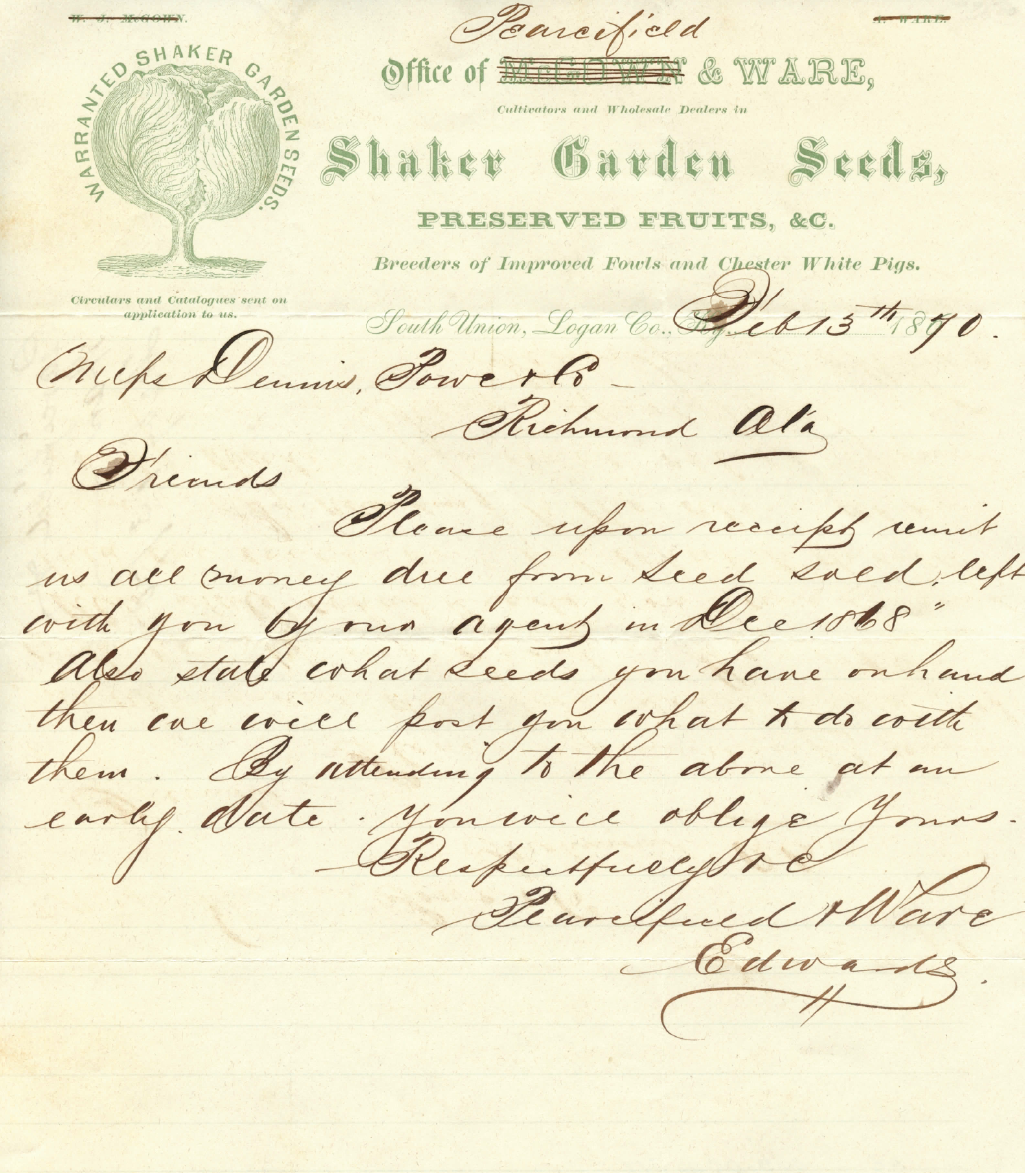 W. J. McGOWN.
A. WARE.
Pearcifield
Office of McGOWN & WARE,
Cultivators and Wholesale Dealers in
WARRANTED SHAKER GARDEN SEEDS.
Shaker Garden Seeds,
PRESERVED FRUITS, &C.
Breeders of Improved Fowls and Chester White Pigs.
Circulars and Catalogues sent on
application to us.
South Union, Logan Co., Ky. Feb 15th 1870.
Messrs Dennis, Powe & Co
Richmond Ala
Friends
Please upon receipt remit
us all money due from seed sold, left
with you by our agent in Dec 1868"
Also state what seeds you have on hand
then we will post you what to do with
them. By attending to the above at an
early date. you will oblige Yours.
Respectfully &C
Pearcifield & Ware
Edwards.